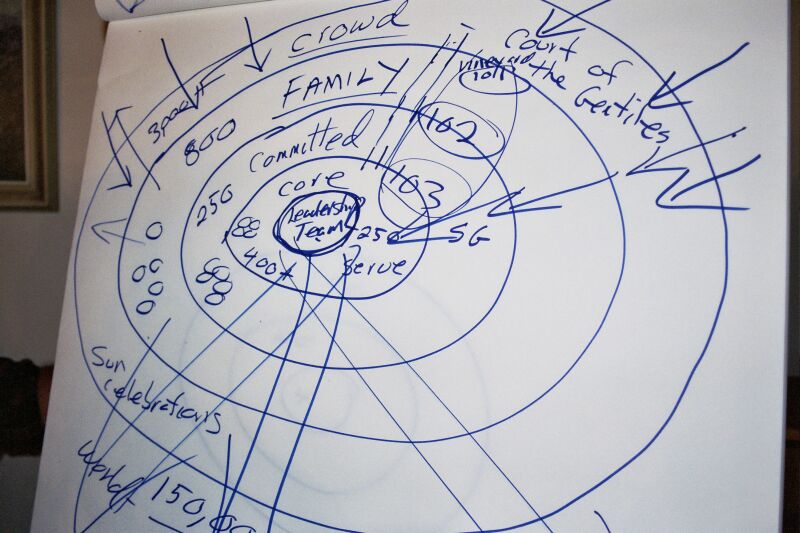 crowd
Court of
the Gentiles
Vineyard
101
FAMILY
800
102
committed
250
core
103
Leadership
Team
250
SG
400+
Serve
Sun
celebrations
World